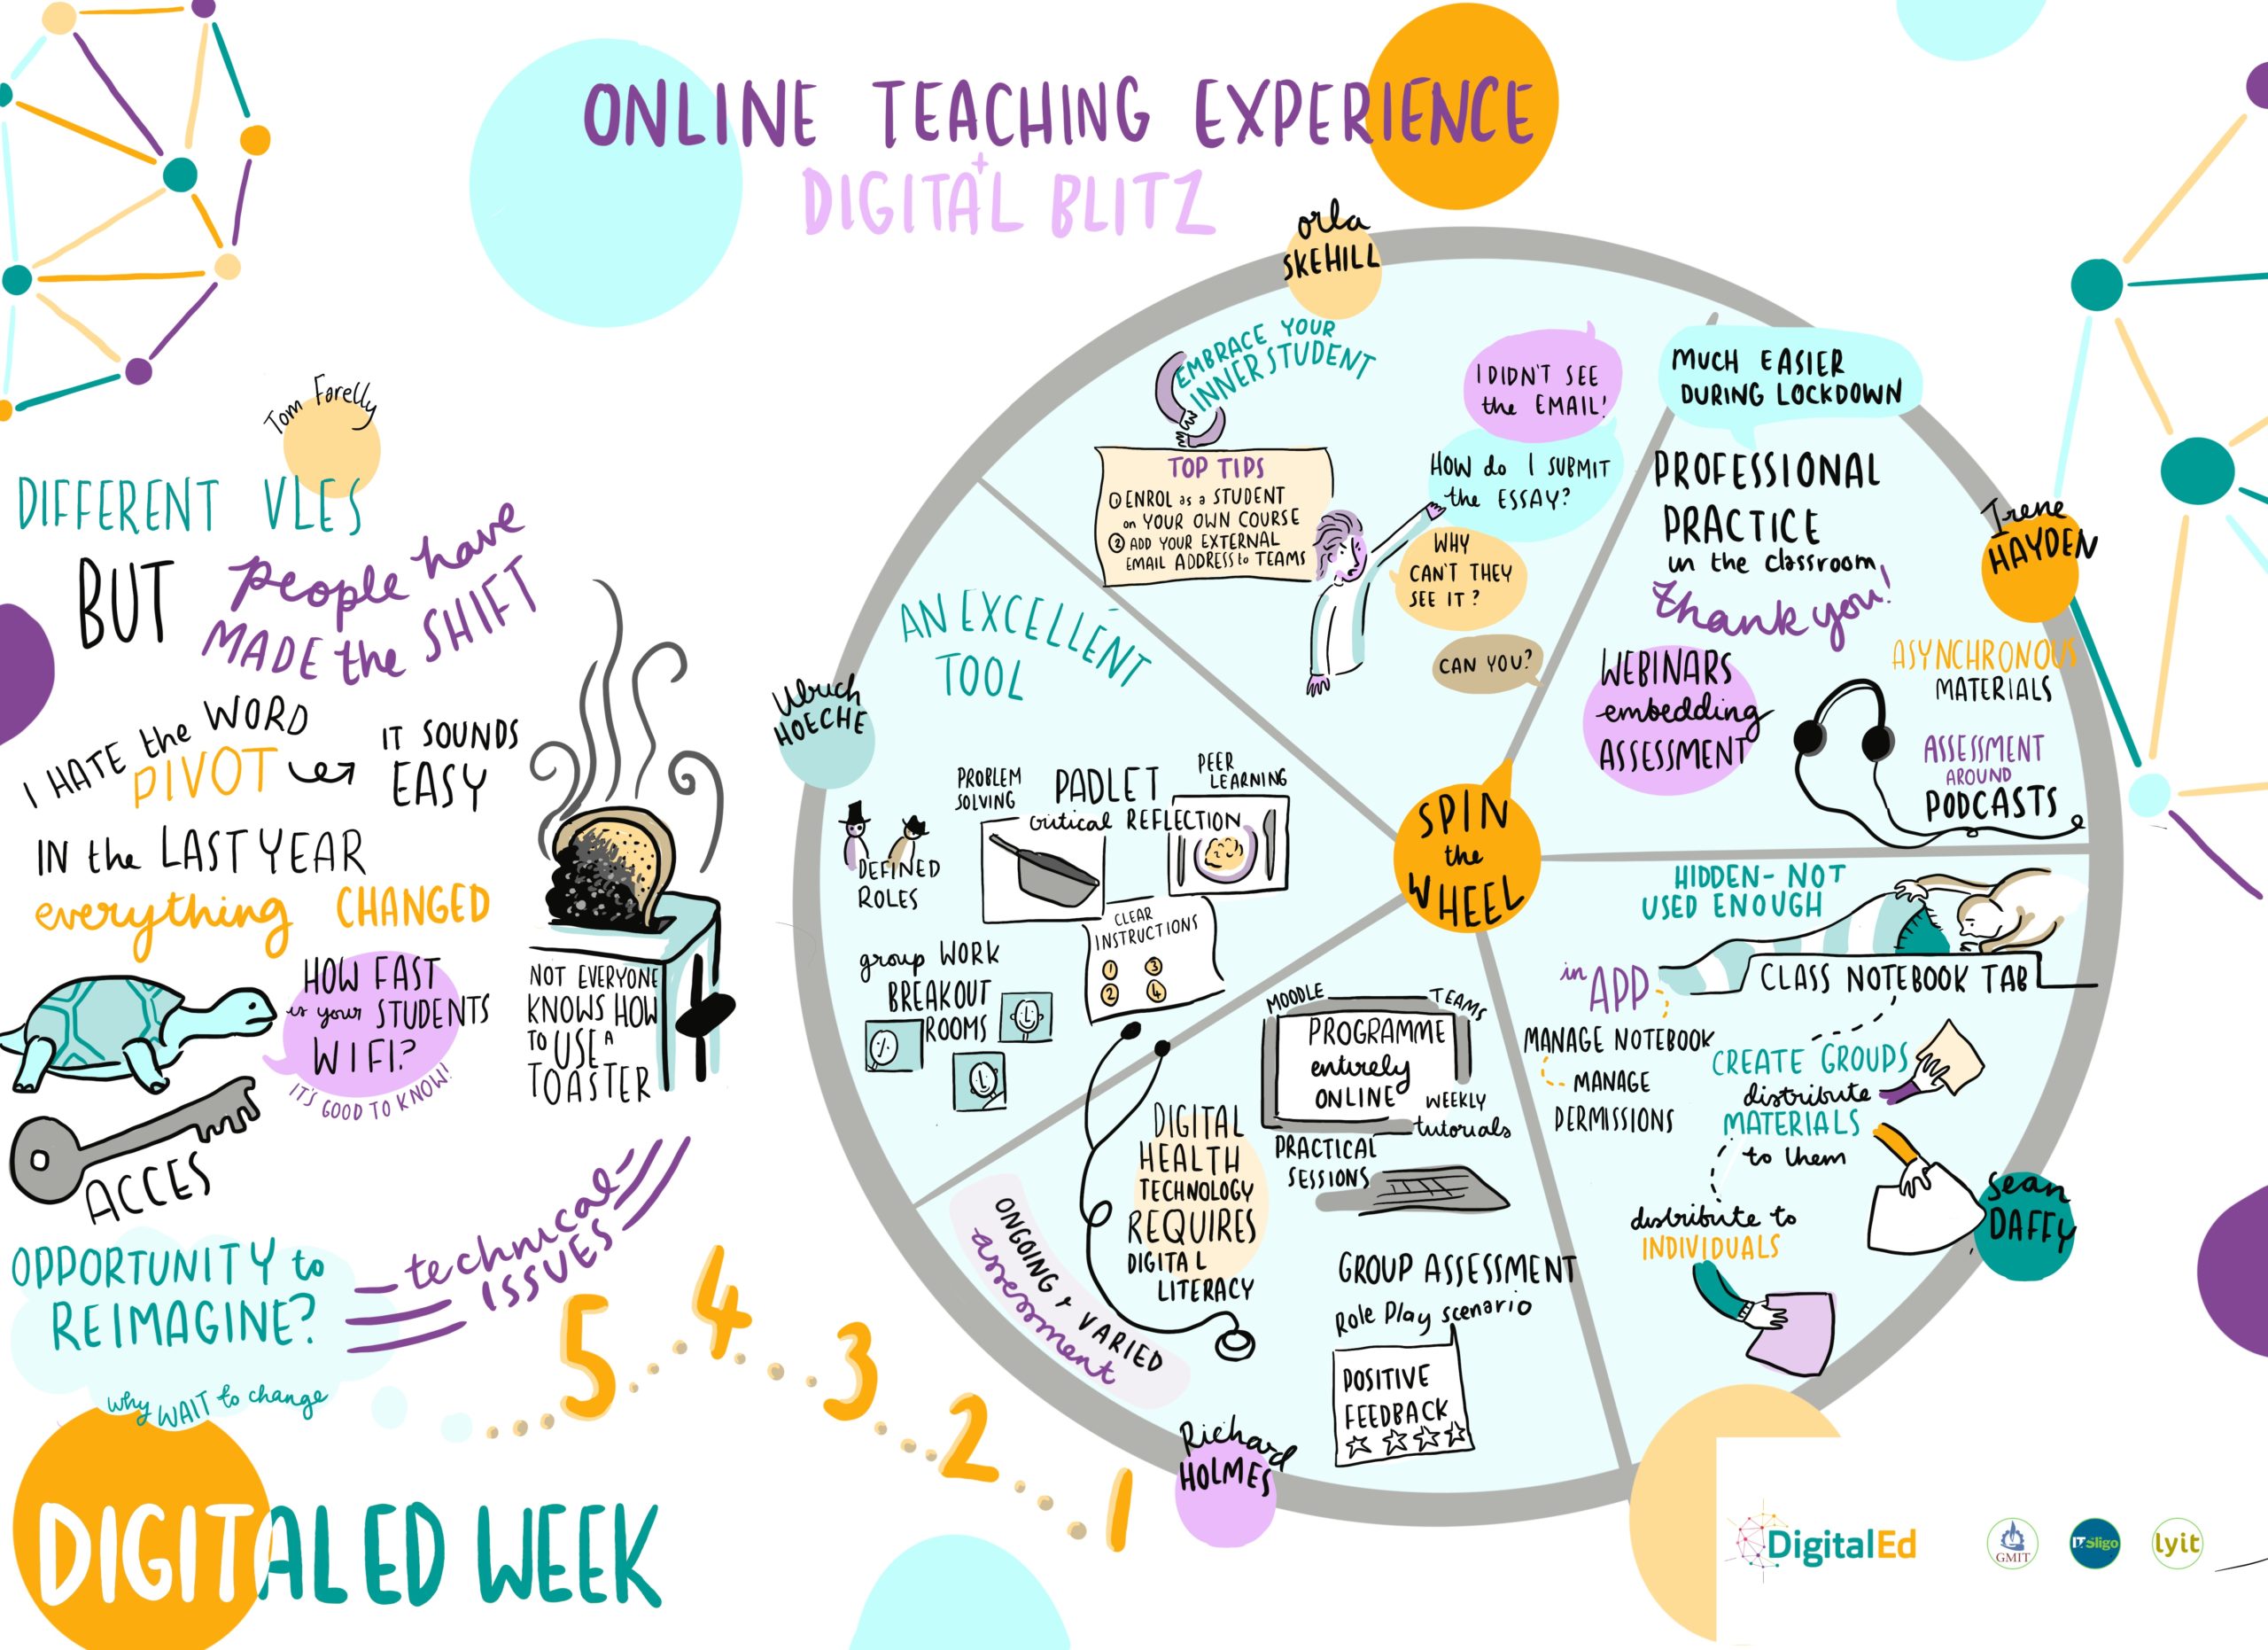 ONLINE TEACHING EXPERIENCE
+
DIGITAL BLITZ
Tom Farelly
DIFFERENT VLES
BUT people have
MADE the SHIFT
I HATE the WORD
PIVOT
IT SOUNDS
EASY
IN the LAST YEAR
everything CHANGED
HOW FAST
is your STUDENTS
WIFI?
IT'S GOOD TO KNOW!
NOT EVERYONE
KNOWS HOW
TO USE A
TOASTER
ACCES
technical
ISSUES
OPPORTUNITY to
REIMAGINE?
why WAIT to change
5 4 3 2 1
DIGITALED WEEK
SPIN
the
WHEEL
orla
SKEHILL
EMBRACE YOUR
INNER STUDENT
TOP TIPS
① ENROL as a STUDENT
on YOUR OWN COURSE
② ADD YOUR EXTERNAL
EMAIL ADDRESS to TEAMS
I DIDN'T SEE
the EMAIL!
HOW do I SUBMIT
the ESSAY?
WHY
CAN'T THEY
SEE IT?
CAN YOU?
Irene
HAYDEN
MUCH EASIER
DURING LOCKDOWN
PROFESSIONAL
PRACTICE
in the classroom
thank you!
WEBINARS
embedding
ASSESSMENT
ASYNCHRONOUS
MATERIALS
ASSESSMENT
AROUND
PODCASTS
Sean
DAFFY
HIDDEN- NOT
USED ENOUGH
CLASS NOTEBOOK TAB
in APP
MANAGE NOTEBOOK
MANAGE
PERMISSIONS
CREATE GROUPS
distribute
MATERIALS
to them
distribute to
INDIVIDUALS
Richard
HOLMES
MOODLE
TEAMS
PROGRAMME
entirely
ONLINE
WEEKLY
tutorials
PRACTICAL
SESSIONS
DIGITAL
HEALTH
TECHNOLOGY
REQUIRES
DIGITAL
LITERACY
ONGOING + VARIED
assessment
GROUP ASSESSMENT
Role Play scenario
POSITIVE
FEEDBACK
Ulrich
HOECHE
AN EXCELLENT
TOOL
PROBLEM
SOLVING
PADLET
critical REFLECTION
PEER
LEARNING
DEFINED
ROLES
CLEAR
INSTRUCTIONS
1 3
2 4
group WORK
BREAKOUT
ROOMS
DigitalEd
GMIT
IT Sligo
lyit